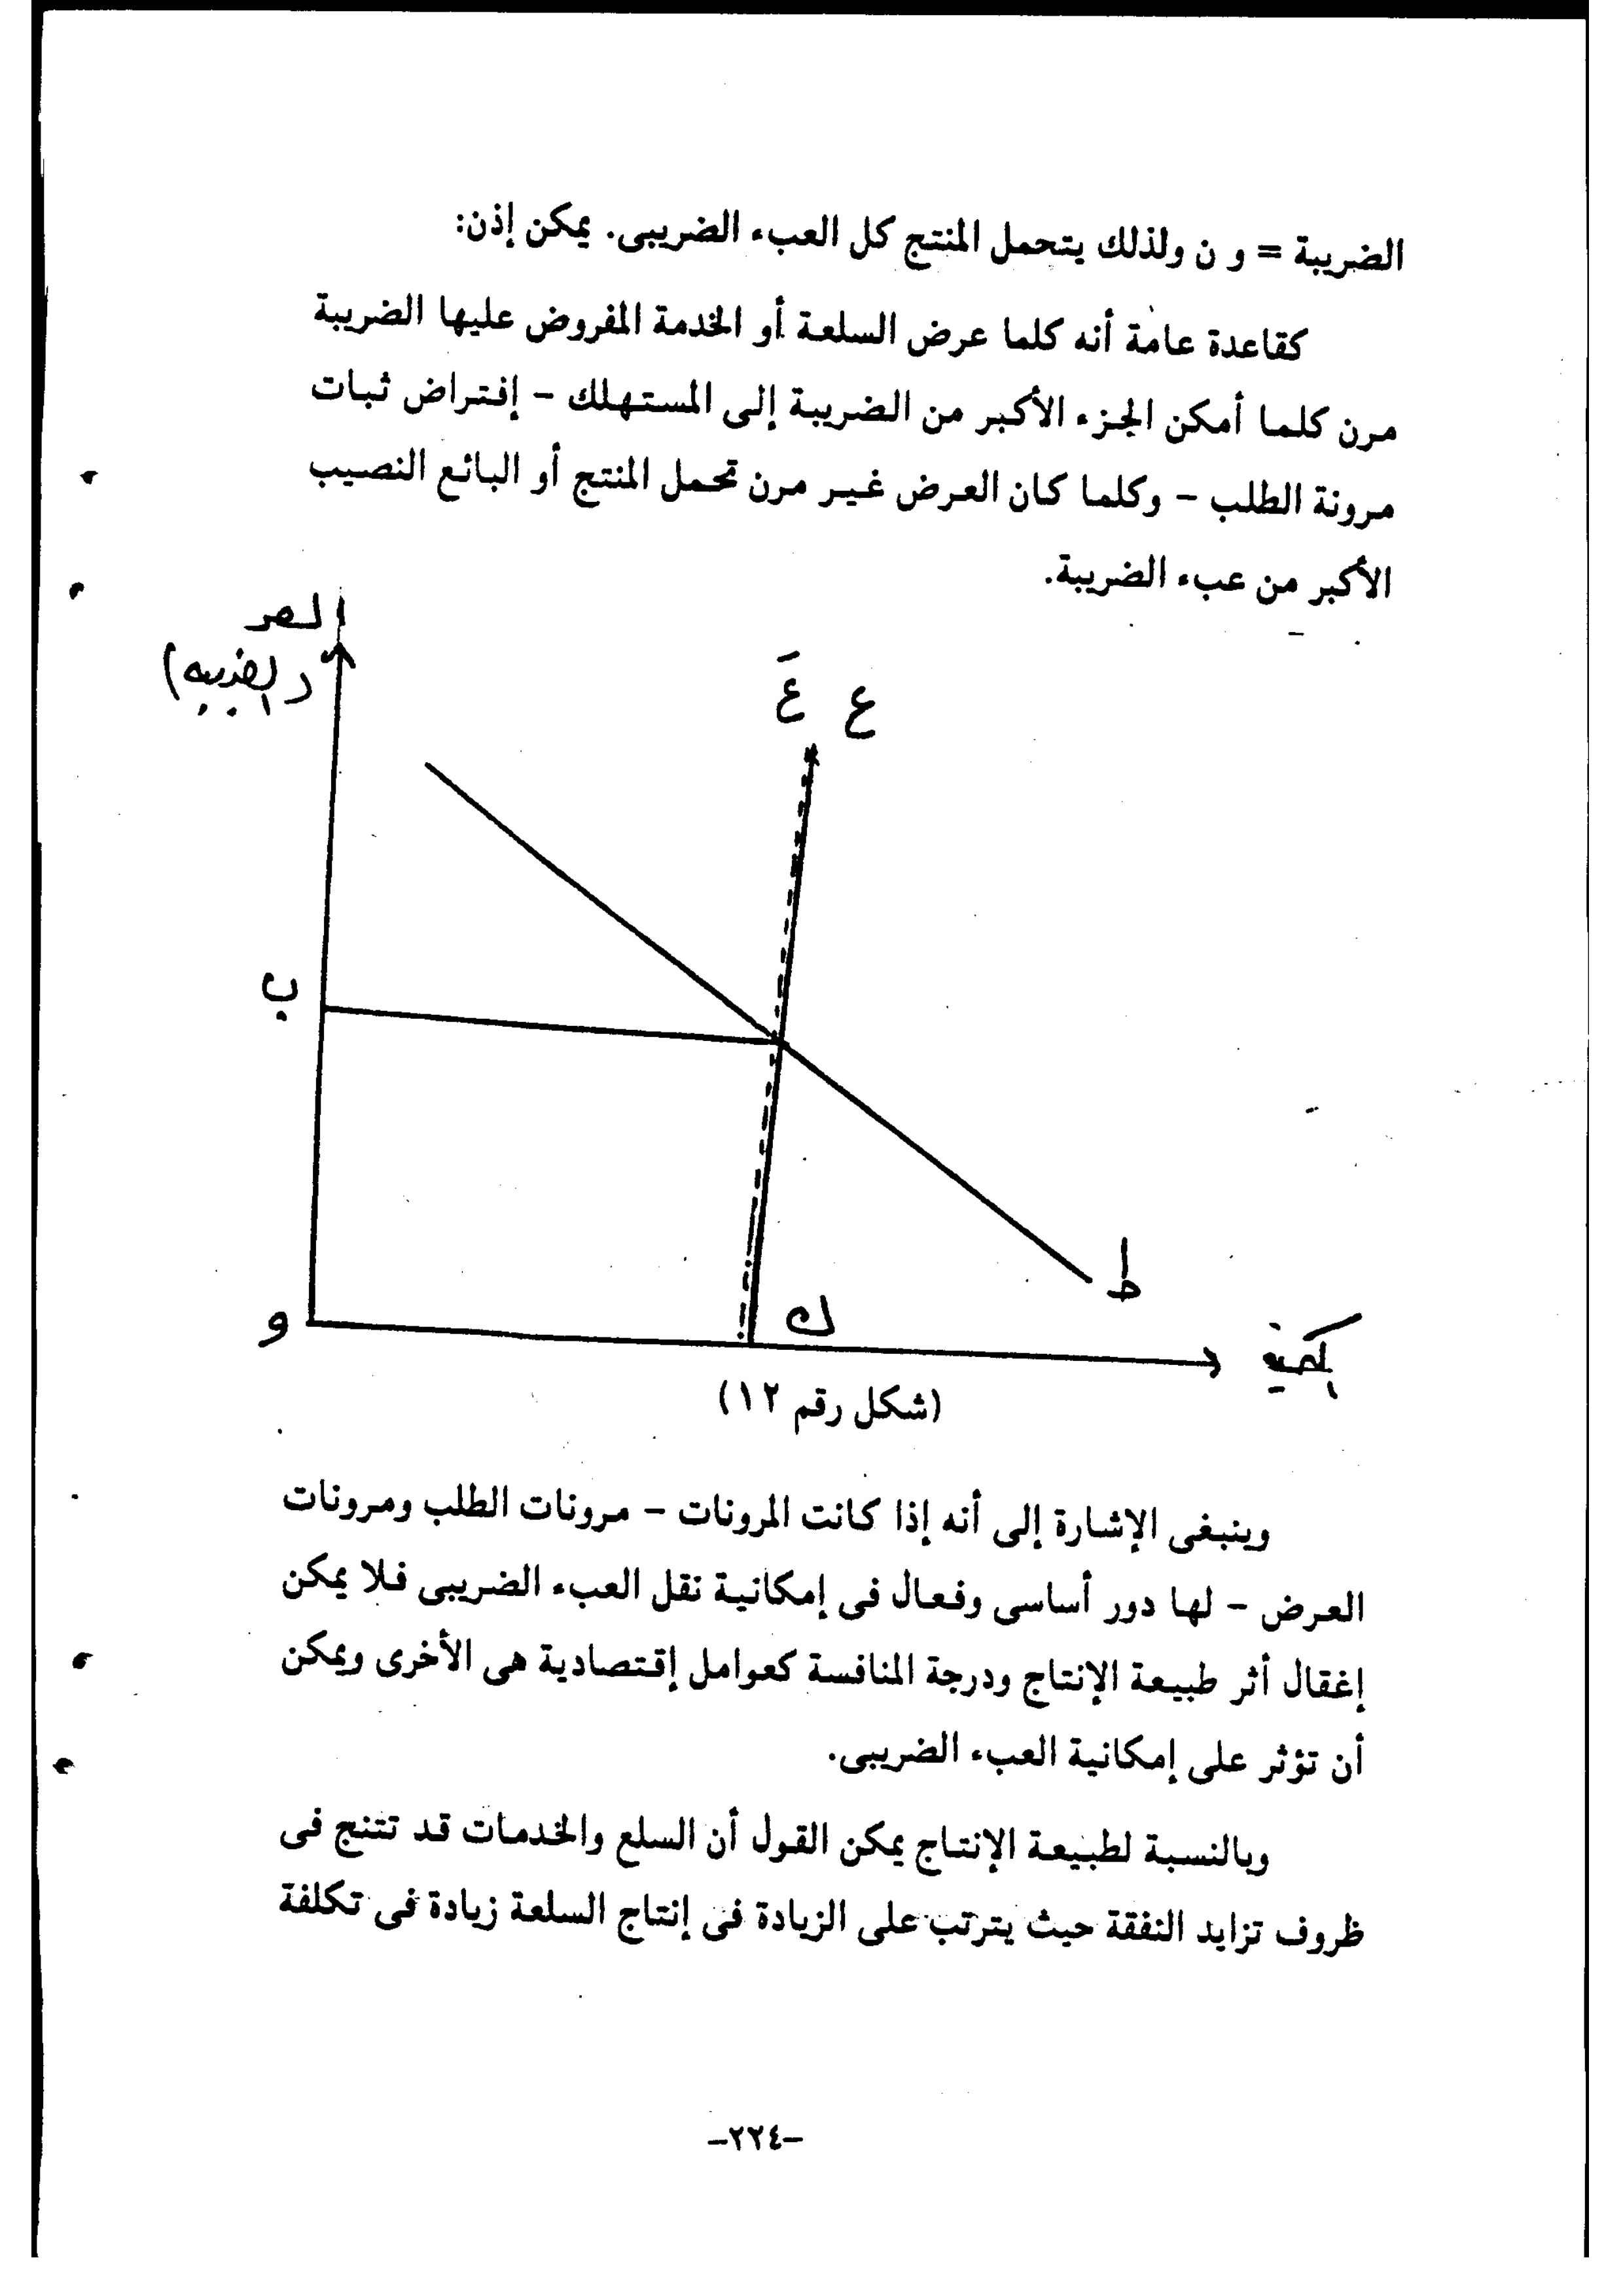 الضريبة = و ن ولذلك يتحمل المنتج كل العبء الضريبى. يمكن إذن:
كقاعدة عامة أنه كلما عرض السلعة أو الخدمة المفروض عليها الضريبة
مرن كلما أمكن الجزء الأكبر من الضريبة إلى المستهلك - إفتراض ثبات
مرونة الطلب - وكلما كان العرض غير مرن تحمل المنتج أو البائع النصيب
الأكبر من عبء الضريبة.
(الضريبة)
عَ ع
ب
ط
ك
و
الكمية
(شكل رقم ١٢)
وينبغى الإشارة إلى أنه إذا كانت المرونات - مرونات الطلب ومرونات
العرض - لها دور أساسى وفعال فى إمكانية نقل العبء الضريبى فلا يمكن
إغقال أثر طبيعة الإنتاج ودرجة المنافسة كعوامل إقتصادية هى الأخرى ويمكن
أن تؤثر على إمكانية العبء الضريبى.
وبالنسبة لطبيعة الإنتاج يمكن القول أن السلع والخدمات قد تتنج فى
ظروف تزايد النفقة حيث يترتب على الزيادة فى إنتاج السلعة زيادة فى تكلفة
-٢٢٤-